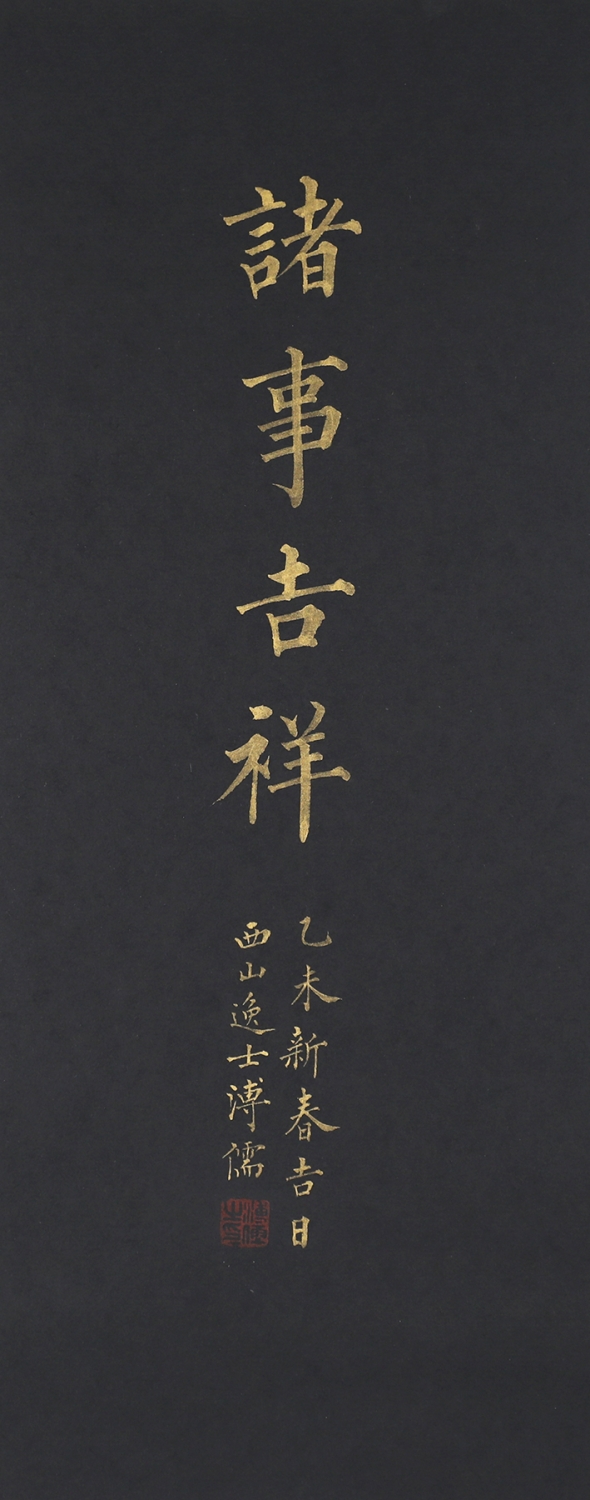 諸事吉祥
乙未新春吉日
西山逸士溥儒